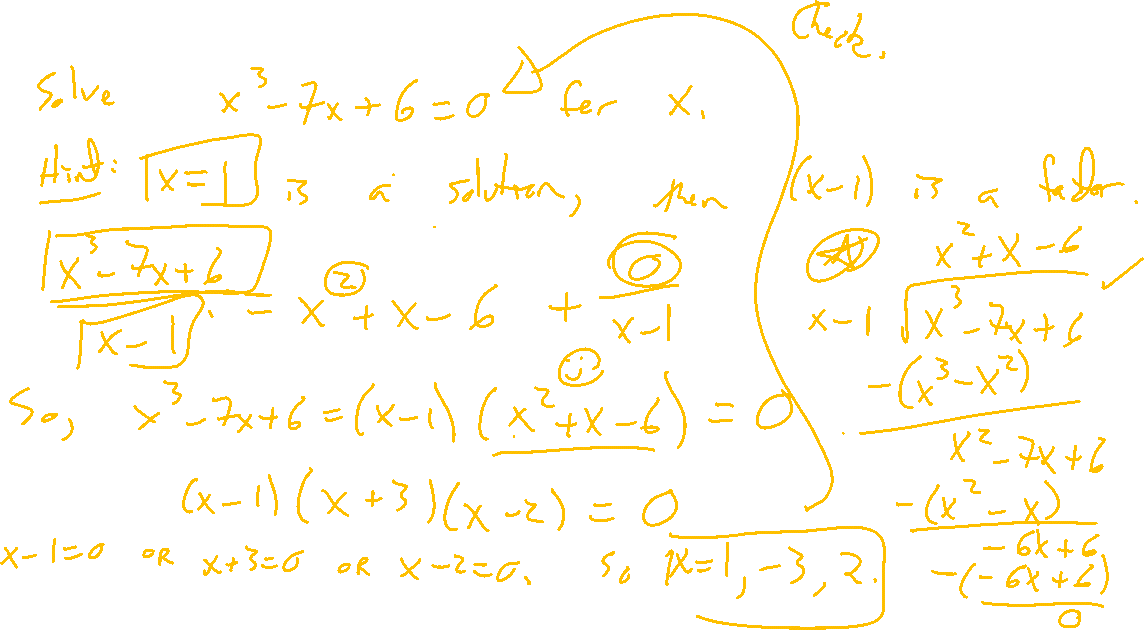 Check.
Solve x³ - 7x + 6 = 0 for x.
Hint: x = 1 is a solution, then (x-1) is a factor.
(x³ - 7x + 6)/(x - 1) = x² + x - 6 + 0/(x-1)
So, x³ - 7x + 6 = (x-1)(x² + x - 6) = 0
(x-1)(x+3)(x-2) = 0
x-1=0 OR x+3=0 OR x-2=0. So x = 1, -3, 2.
x² + x - 6
x-1 √x³ - 7x + 6
-(x³ - x²)
x² - 7x + 6
-(x² - x)
-6x + 6
-(-6x + 6)
0